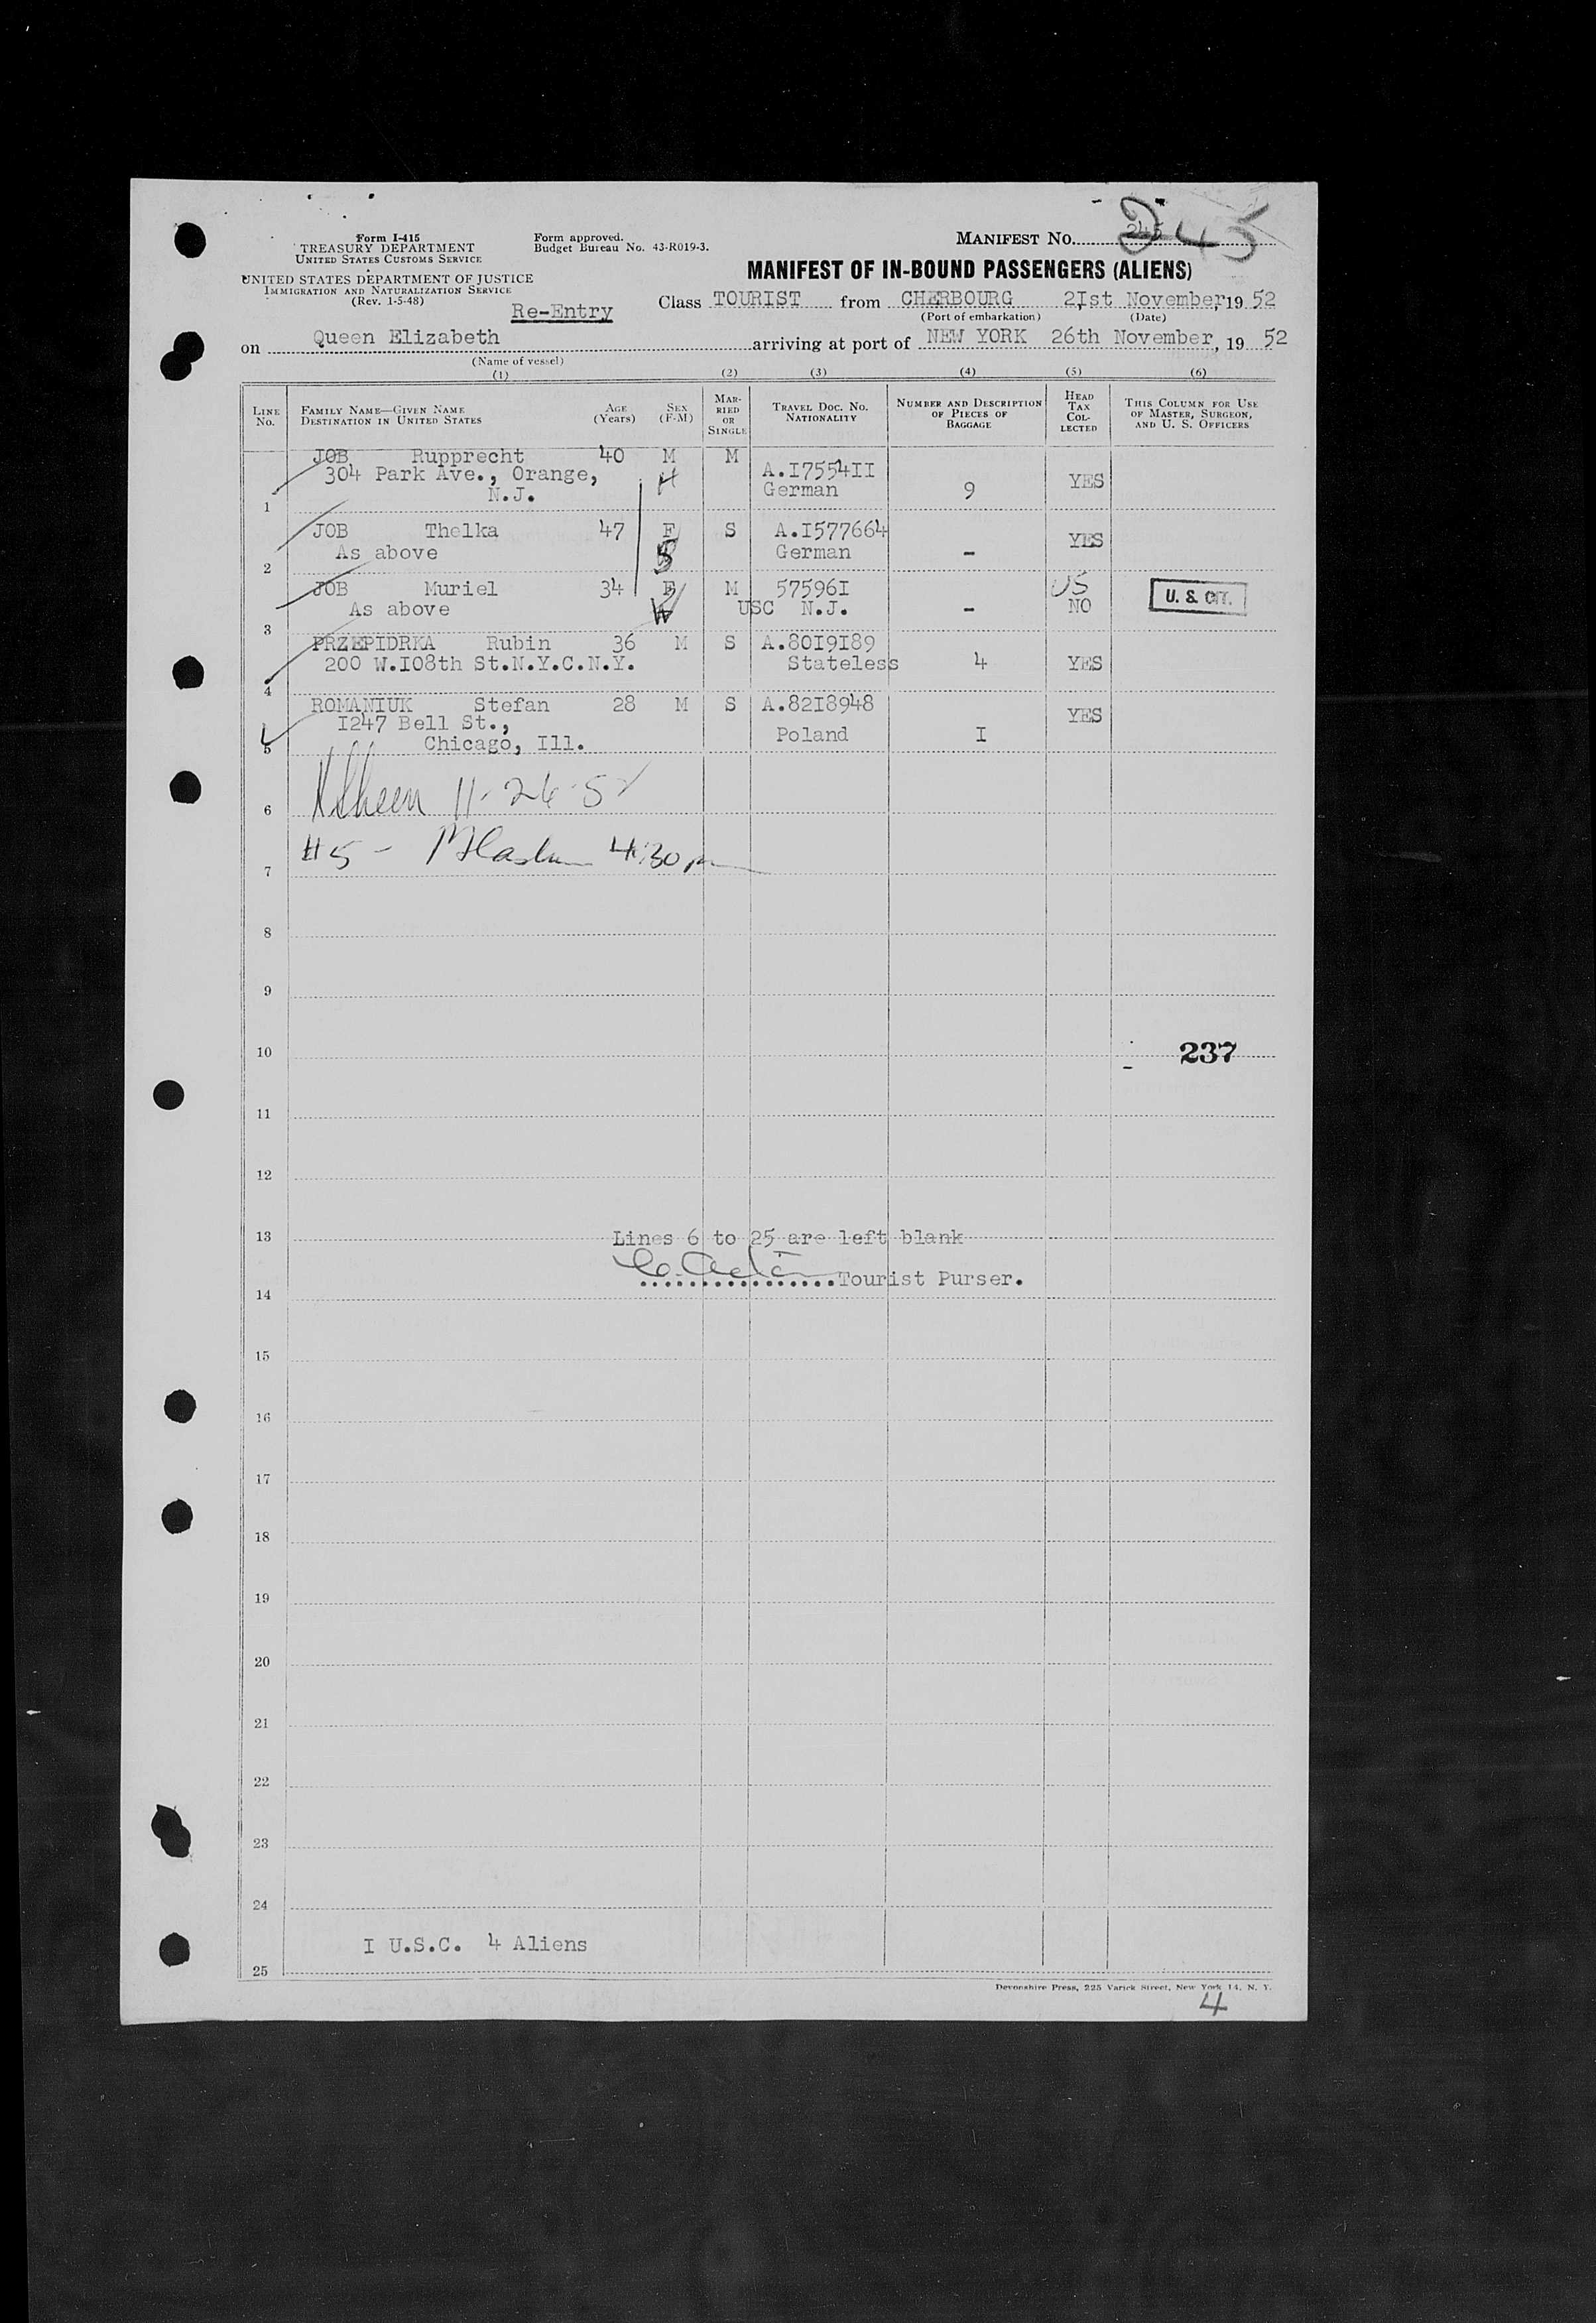 Form I-415
TREASURY DEPARTMENT
UNITED STATES CUSTOMS SERVICE
UNITED STATES DEPARTMENT OF JUSTICE
IMMIGRATION AND NATURALIZATION SERVICE
(Rev. 1-5-48)
Form approved.
Budget Bureau No. 43-R019-3.
MANIFEST No. 245 245
MANIFEST OF IN-BOUND PASSENGERS (ALIENS)
Re-Entry
Class TOURIST from CHERBOURG 2Ist November, 19 52
(Port of embarkation) (Date)
on Queen Elizabeth arriving at port of NEW YORK 26th November, 19 52
(Name of vessel)
(1) (2) (3) (4) (5) (6)
LINE No. FAMILY NAME—GIVEN NAME DESTINATION IN UNITED STATES AGE (Years) SEX (F-M) MARRIED OR SINGLE TRAVEL DOC. NO. NATIONALITY NUMBER AND DESCRIPTION OF PIECES OF BAGGAGE HEAD TAX COLLECTED THIS COLUMN FOR USE OF MASTER, SURGEON, AND U. S. OFFICERS
JOB Rupprecht 40 M M A.I7554II
304 Park Ave., Orange, H German 9 YES
1 N.J.
JOB Thelka 47 F S A.I577664 YES
2 As above S German -
JOB Muriel 34 F M 57596I US U. S. CIT.
As above W USC N.J. - NO
3
PRZEPIDRKA Rubin 36 M S A.80I9I89
200 W.I08th St.N.Y.C.N.Y. Stateless 4 YES
4
ROMANIUK Stefan 28 M S A.82I8948 YES
I247 Bell St., Poland I
5 Chicago, Ill.
6 11-26-52
7 #5 - 4:30 pm
8
9
10 237
11
12
13 Lines 6 to 25 are left blank
14 Tourist Purser.
15
16
17
18
19
20
21
22
23
24
I U.S.C. 4 Aliens
25
Devonshire Press, 225 Varick Street, New York 14, N. Y.
4